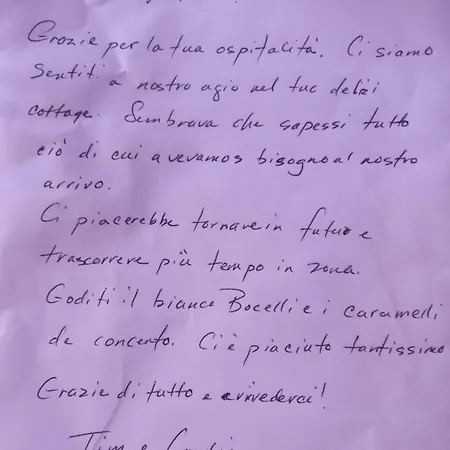 Grazie per la tua ospitalità. Ci siamo
sentiti a nostro agio nel tuo delizi
cottage. Sembrava che sapessi tutto
ciò di cui avevamos bisogno al nostro
arrivo.
Ci piacerebbe tornare in futuro e
trascorrere più tempo in zona.
Goditi il bianco Bocelli e i caramelli
de concerto. Ci è piaciuto tantissimo
Grazie di tutto e arrivederci!
Tim e